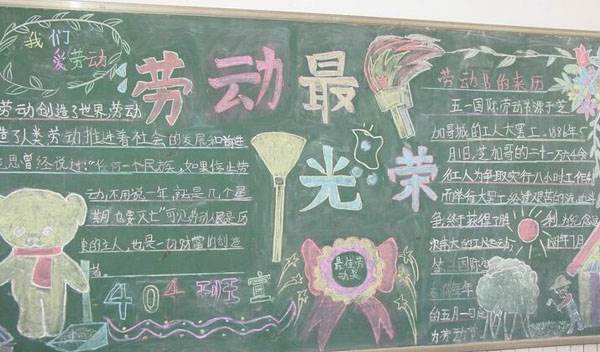 我们
爱劳动
劳动最
光荣
劳动创造了世界,劳动
造了人类劳动推进着社会的发展和前进
思曾经说过:"任何一个民族,如果停止劳
动,不用说一年,就是几个星
期,也要灭亡"可见劳动人民是历
史的主人,也是一切财富的创造
者。
404
宣
最佳劳
动奖
劳动节的来历
五一国际劳动节源于芝
加哥城的工人大罢工,1886年5
月1日,芝加哥的二十一万六千余
名工人为争取实行八小时工作
而举行大罢工,经过艰苦的流血
争,终于获得了胜利 为纪念
次伟大的工人运动, 1889年7月
第二国际
的五月一日
为劳动